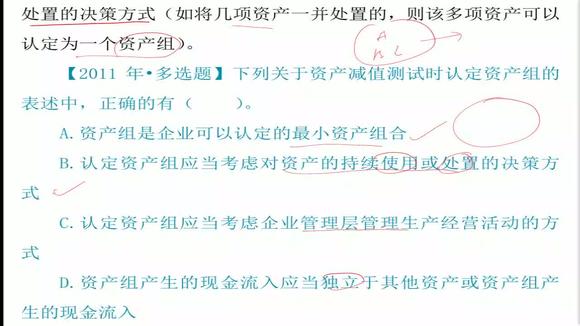 处置的决策方式（如将几项资产一并处置的，则该多项资产可以
认定为一个资产组）。
A
B C
【2011 年•多选题】下列关于资产减值测试时认定资产组的
表述中，正确的有（　　）。
A.资产组是企业可以认定的最小资产组合
B.认定资产组应当考虑对资产的持续使用或处置的决策方
式
C.认定资产组应当考虑企业管理层管理生产经营活动的方
式
D.资产组产生的现金流入应当独立于其他资产或资产组产
生的现金流入